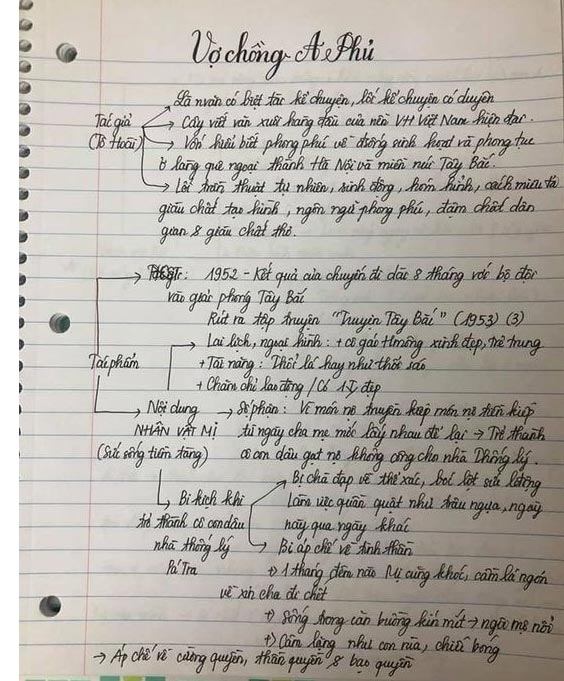 Vợ chồng A Phủ
Là nvăn có biệt tài kể chuyện, lối kể chuyện có duyên
Tác giả Cây viết văn xuôi hàng đầu của nền VH Việt Nam hiện đại.
(Tô Hoài) Vốn hiểu biết phong phú về đời sống sinh hoạt và phong tục
ở làng quê ngoại thành Hà Nội và miền núi Tây Bắc.
Lối trần thuật tự nhiên, sinh động, hóm hỉnh, cách miêu tả
giàu chất tạo hình, ngôn ngữ phong phú, đậm chất dân
gian & giàu chất thơ.
1952 - Kết quả của chuyến đi dài 8 tháng với bộ đội
vào giải phóng Tây Bắc
Rút ra tập truyện "Truyện Tây Bắc" (1953) (3)
Lai lịch, ngoại hình: + cô gái H'mông xinh đẹp, trẻ trung
Tác phẩm + Tài năng: Thổi lá hay như thổi sáo
+ Chăm chỉ lao động / Có 1 TY đẹp
Nội dung → Số phận: Vì món nợ truyền kiếp món nợ tiền kiếp
NHÂN VẬT MỊ từ ngày cha mẹ mới lấy nhau để lại → Trở thành
(Sức sống tiềm tàng) cô con dâu gạt nợ không công cho nhà Thống lý.
Bị chà đạp về thể xác, bóc lột sức lđộng
Bi kịch khi Làm việc quần quật như trâu ngựa, ngày
trở thành cô con dâu này qua ngày khác
nhà thống lý Bị áp chế về tinh thần
Pá Tra +) 1 tháng đêm nào Mị cũng khóc, cầm lá ngón
về xin cha đi chết
+) Sống trong căn buồng kín mít → ngôi mộ nổi
+) Câm lặng như con rùa, chiếc bóng
→ Áp chế về cường quyền, thần quyền & bạo quyền